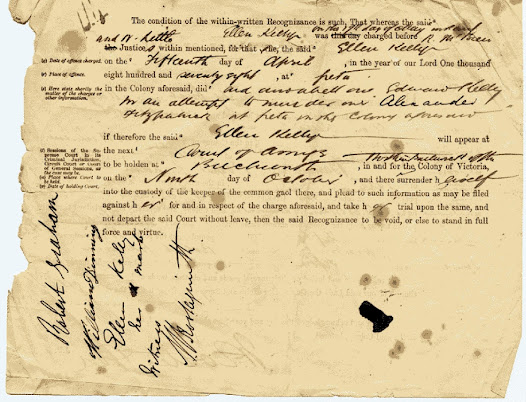 The condition of the within-written Recognizance is such, That whereas the said
Ellen Kelly on the 17th day of May
and W. Kettle was this day charged before R. McBean
the Justices within mentioned, for that she, the said Ellen Kelly
(a) Date of offence charged. on the Fifteenth day of April, in the year of our Lord One thousand
(b) Place of offence. eight hundred and seventy eight, at Greta
(c) Here state shortly the matter of the charge or other information. in the Colony aforesaid, did aid and abett one Edward Kelly
in an attempt to murder one Alexander
Fitzpatrick at Greta in the Colony aforesaid
if therefore the said Ellen Kelly will appear at
(d) Sessions of the Supreme Court in its Criminal Jurisdiction, Circuit Court or Court of General Sessions, as the case may be. the next Court of Assize
(e) Place where Court to be held. to be holden at Beechworth, in and for the Colony of Victoria,
(f) Date of holding Court. on the Ninth day of October, and there surrender herself
into the custody of the keeper of the common gaol there, and plead to such information as may be filed
against her for and in respect of the charge aforesaid, and take her trial upon the same, and
not depart the said Court without leave, then the said Recognizance to be void, or else to stand in full
force and virtue.
Robert Graham
William Dinning
Ellen Kelly
her x mark
Witness